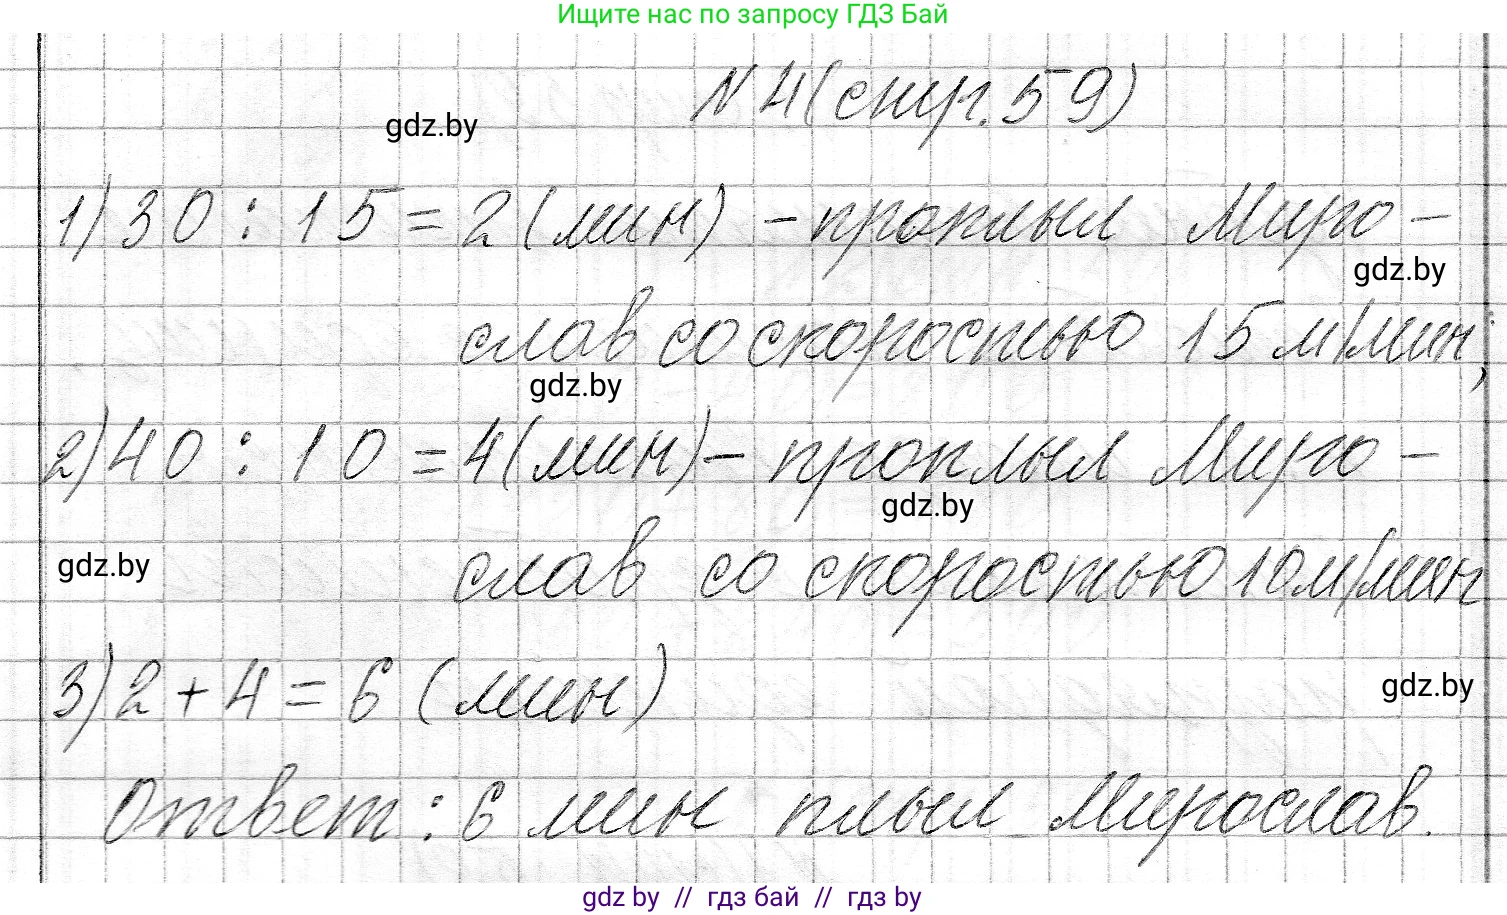 Ищите нас по запросу ГДЗ Бай
N 4 (стр. 59)
gdz.by
1) 30 : 15 = 2 (мин) - проплыл Миро-
gdz.by
слав со скоростью 15 м/мин;
gdz.by
2) 40 : 10 = 4 (мин) - проплыл Миро-
gdz.by
слав со скоростью 10 м/мин
gdz.by
3) 2 + 4 = 6 (мин)
gdz.by
Ответ : 6 мин плыл Мирослав.
gdz by // гдз бай // гдз by